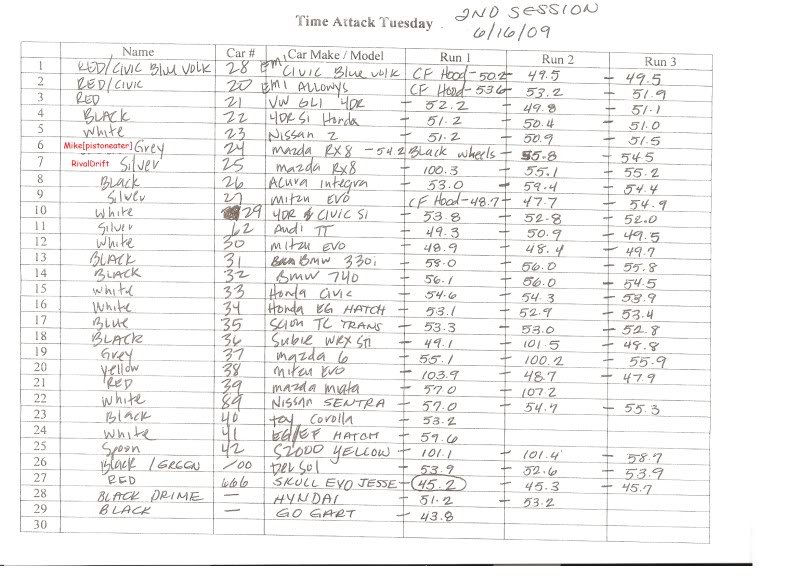 Time Attack Tuesday 2ND SESSION
6/16/09
Name Car # Car Make / Model Run 1 Run 2 Run 3
1 RED/CIVIC Blue VOLK 28 EMI CIVIC Blue volk CF Hood - 50.2 - 49.5 - 49.5
2 RED/CIVIC 20 EMI Allowys CF Hood - 53.6 - 53.2 - 51.9
3 RED 21 VW GLI 4DR - 52.2 - 49.8 - 51.1
4 BLACK 22 4DR Si Honda - 51.2 - 50.4 - 51.0
5 white 23 Nissan Z - 51.2 - 50.9 - 51.5
6 Mike[pistoneater] Grey 24 mazda RX8 - 54.2 Black wheels - 55.8 - 54.5
7 RivalDrift Silver 25 mazda RX8 - 100.3 - 55.1 - 55.2
8 Black 26 Acura integra - 53.0 - 59.4 - 54.4
9 Silver 27 mitzu EVO CF Hood - 48.7 - 47.7 - 54.9
10 white 29 4DR CIVIC Si - 53.8 - 52.8 - 52.0
11 Silver 62 Audi TT - 49.3 - 50.9 - 49.5
12 white 30 mitzu EVO - 48.9 - 48.4 - 49.7
13 BLACK 31 BMW 330i - 58.0 - 56.0 - 55.8
14 BLACK 32 BMW 740 - 56.1 - 56.0 - 54.5
15 white 33 Honda Civic - 54.6 - 54.3 - 53.9
16 White 34 Honda EG HATCH - 53.1 - 52.9 - 53.4
17 Blue 35 Scion TC TRANS - 53.3 - 53.0 - 52.8
18 BLACK 36 Subie WRX STI - 49.1 - 101.5 - 48.8
19 Grey 37 mazda 6 - 55.1 - 100.2 - 55.9
20 yellow 38 mitzu EVO - 103.9 - 48.7 - 47.9
21 RED 39 mazda miata - 57.0 - 107.2
22 white 89 Nissan SENTRA - 57.0 - 54.7 - 55.3
23 Black 40 toy Corolla - 53.2
24 white 41 EG/EF HATCH - 59.6
25 Spoon 42 S2000 YELLOW - 101.1 - 101.4 - 58.7
26 Black / GREEN /00 Del Sol - 53.9 - 52.6 - 53.9
27 RED 666 SKULL EVO JESSE - 45.2 - 45.3 - 45.7
28 BLACK PRIME — HYNDAI - 51.2 - 53.2
29 BLACK — GO GART - 43.8
30